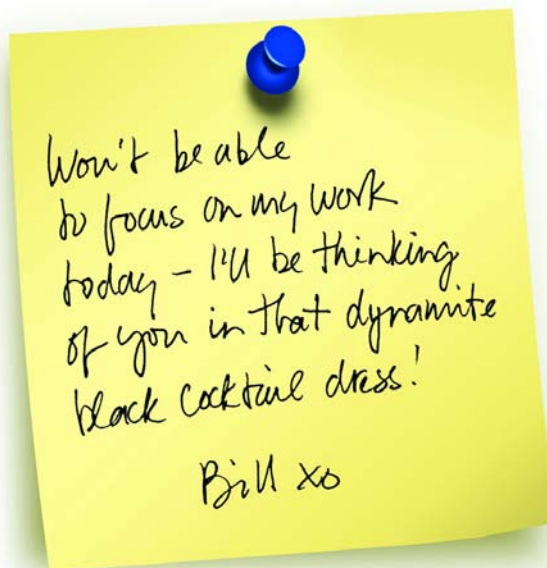 Won't be able
to focus on my work
today – I'll be thinking
of you in that dynamite
black cocktail dress!
Bill xo